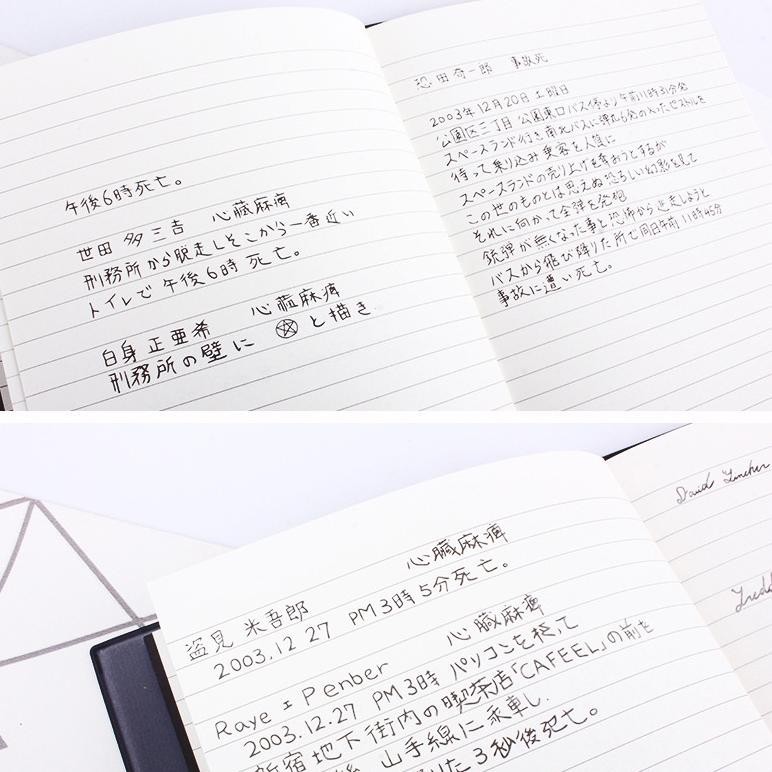 午後6時死亡。
世田 多三吉　心臓麻痺
刑務所から脱走しそこから一番近い
トイレで午後6時死亡。
白身 正亜希　心臓麻痺
刑務所の壁に と描き
恐田奇一郎　事故死
2003年12月20日土曜日
公園区三丁目 公園東口バス停より午前11時31分発
スペースランド行き南北バスに 6発の入ったピストルを
待って乗り込み乗客を人質に
スペースランドの売り上げを奪おうとするが
この世のものとは思えぬ恐ろしい幻影を見て
それに向かって全弾を発砲
銃弾が無くなった事と恐怖から逃走しようと
バスから飛び降りた所で同日午前11時45分
事故に遭い死亡。
心臓麻痺
盗見 米吾郎
2003.12.27 PM3時5分死亡。
心臓麻痺
Raye Penber
2003.12.27 PM3時 パソコンを
新宿地下街内の喫茶店「CAFEEL」の前を
山手線に乗車し、
た3秒後死亡。
David